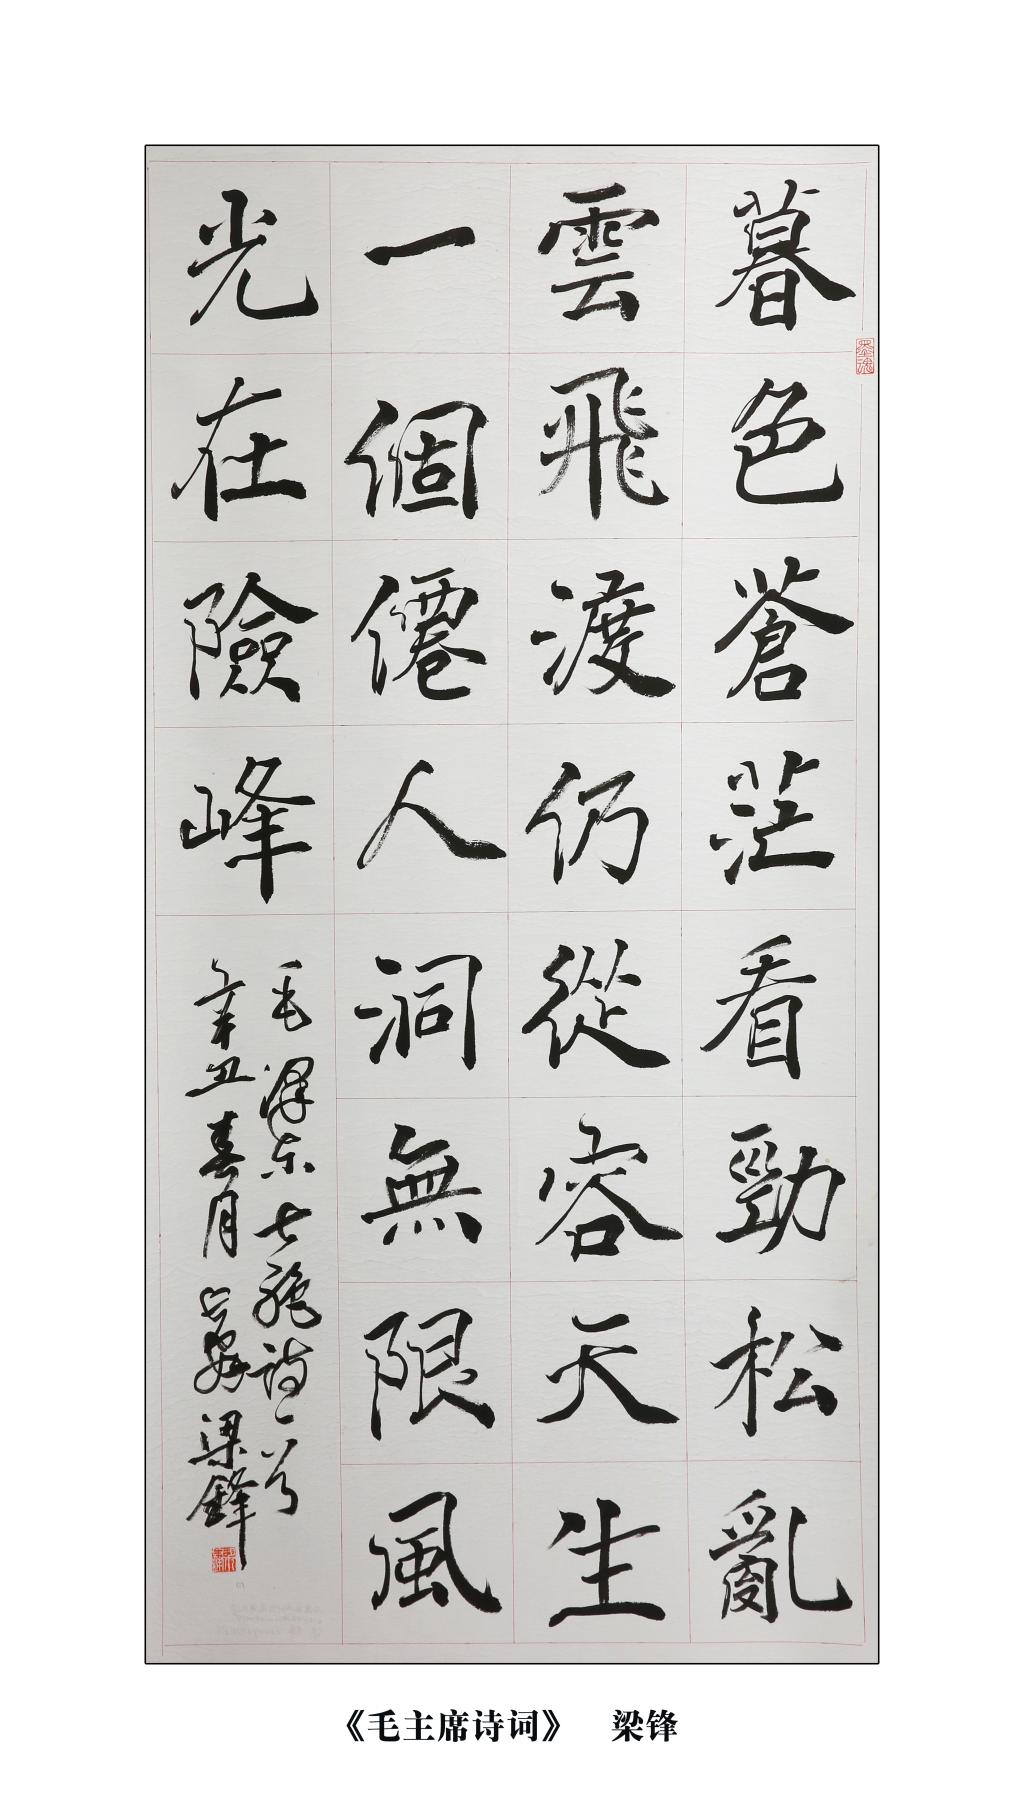 暮色蒼茫看勁松亂
雲飛渡仍從容天生
一個僊人洞無限風
光在險峰
毛澤东七絶詩一首
辛丑春月 梁鋒
墨魂
《毛主席诗词》 梁锋